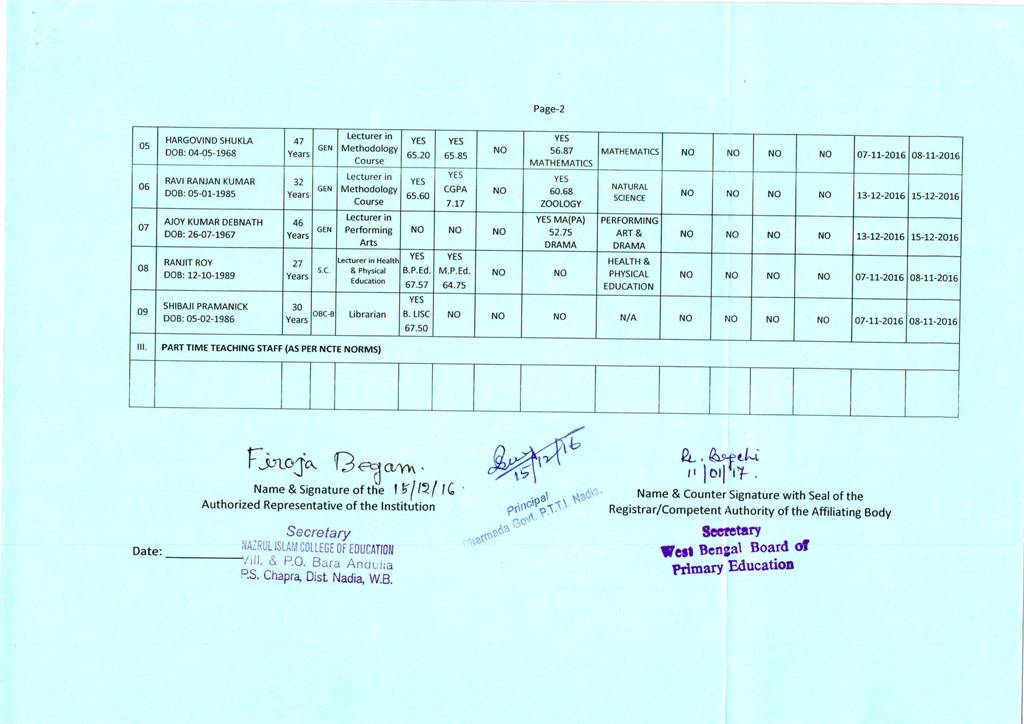 Page-2
05 HARGOVIND SHUKLA DOB: 04-05-1968 47 Years GEN Lecturer in Methodology Course YES 65.20 YES 65.85 NO YES 56.87 MATHEMATICS MATHEMATICS NO NO NO NO 07-11-2016 08-11-2016
06 RAVI RANJAN KUMAR DOB: 05-01-1985 32 Years GEN Lecturer in Methodology Course YES 65.60 YES CGPA 7.17 NO YES 60.68 ZOOLOGY NATURAL SCIENCE NO NO NO NO 13-12-2016 15-12-2016
07 AJOY KUMAR DEBNATH DOB: 26-07-1967 46 Years GEN Lecturer in Performing Arts NO NO NO YES MA(PA) 52.75 DRAMA PERFORMING ART & DRAMA NO NO NO NO 13-12-2016 15-12-2016
08 RANJIT ROY DOB: 12-10-1989 27 Years S.C. Lecturer in Health & Physical Education YES B.P.Ed. 67.57 YES M.P.Ed. 64.75 NO NO HEALTH & PHYSICAL EDUCATION NO NO NO NO 07-11-2016 08-11-2016
09 SHIBAJI PRAMANICK DOB: 05-02-1986 30 Years OBC-B Librarian YES B. LISC 67.50 NO NO NO N/A NO NO NO NO 07-11-2016 08-11-2016
III. PART TIME TEACHING STAFF (AS PER NCTE NORMS)
Firoja Begam.
Name & Signature of the 15/12/16.
Authorized Representative of the Institution
Secretary
NAZRUL ISLAM COLLEGE OF EDUCATION
Vill. & P.O. Bara Andulia
P.S. Chapra, Dist. Nadia, W.B.
Date:
15/12/16
Principal
Dharmada Govt. P.T.T.I. Nadia.
11/01/17.
Name & Counter Signature with Seal of the
Registrar/Competent Authority of the Affiliating Body
Secretary
West Bengal Board of
Primary Education